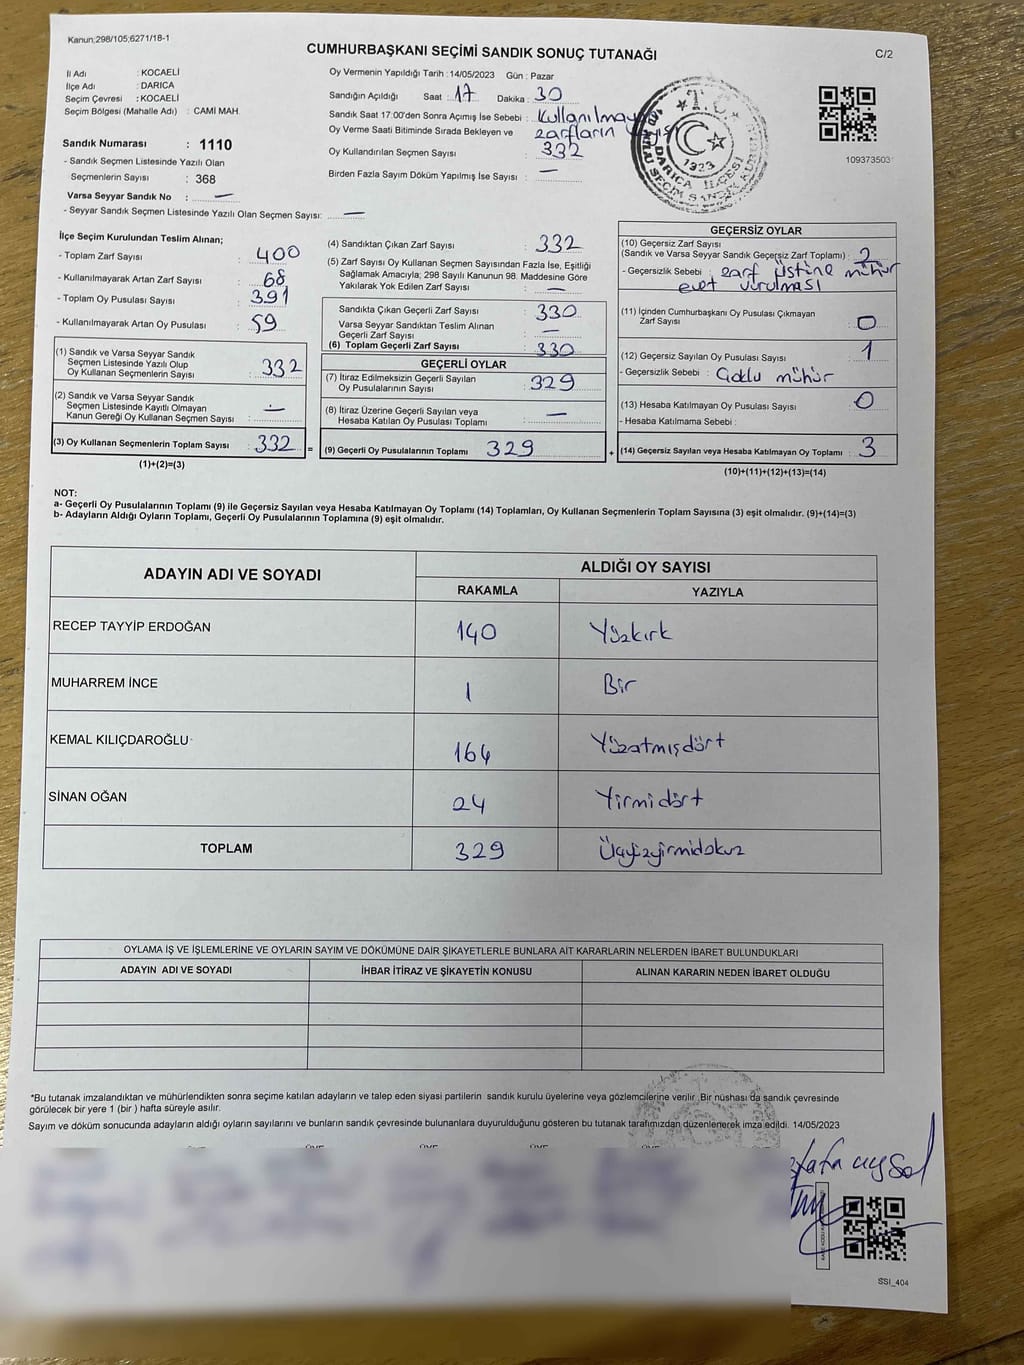 Kanun;298/105;6271/18-1
CUMHURBAŞKANI SEÇİMİ SANDIK SONUÇ TUTANAĞI
C/2
İl Adı : KOCAELİ
İlçe Adı : DARICA
Seçim Çevresi : KOCAELİ
Seçim Bölgesi (Mahalle Adı) : CAMİ MAH.
Sandık Numarası : 1110
- Sandık Seçmen Listesinde Yazılı Olan
Seçmenlerin Sayısı : 368
Varsa Seyyar Sandık No : —
- Seyyar Sandık Seçmen Listesinde Yazılı Olan Seçmen Sayısı: —
Oy Vermenin Yapıldığı Tarih : 14/05/2023 Gün : Pazar
Sandığın Açıldığı Saat : 17 Dakika : 30
Sandık Saat 17:00'den Sonra Açımış İse Sebebi : Kullanılmay
Oy Verme Saati Bitiminde Sırada Bekleyen ve zarfların
Oy Kullandırılan Seçmen Sayısı : 332
Birden Fazla Sayım Döküm Yapılmış İse Sayısı : —
T.C.
1923
DARICA İLÇESİ
109373503
İlçe Seçim Kurulundan Teslim Alınan;
- Toplam Zarf Sayısı : 400
- Kullanılmayarak Artan Zarf Sayısı : 68
- Toplam Oy Pusulası Sayısı : 391
- Kullanılmayarak Artan Oy Pusulası : 59
(1) Sandık ve Varsa Seyyar Sandık
Seçmen Listesinde Yazılı Olup
Oy Kullanan Seçmenlerin Sayısı : 332
(2) Sandık ve Varsa Seyyar Sandık
Seçmen Listesinde Kayıtlı Olmayan
Kanun Gereği Oy Kullanan Seçmen Sayısı : —
(3) Oy Kullanan Seçmenlerin Toplam Sayısı : 332 =
(1)+(2)=(3)
(4) Sandıktan Çıkan Zarf Sayısı : 332
(5) Zarf Sayısı Oy Kullanan Seçmen Sayısından Fazla İse, Eşitliği
Sağlamak Amacıyla; 298 Sayılı Kanunun 98. Maddesine Göre
Yakılarak Yok Edilen Zarf Sayısı : —
Sandıkta Çıkan Geçerli Zarf Sayısı : 330
Varsa Seyyar Sandıktan Teslim Alınan
Geçerli Zarf Sayısı : —
(6) Toplam Geçerli Zarf Sayısı : 330
GEÇERLİ OYLAR
(7) İtiraz Edilmeksizin Geçerli Sayılan
Oy Pusulalarının Sayısı : 329
(8) İtiraz Üzerine Geçerli Sayılan veya
Hesaba Katılan Oy Pusulası Toplamı : —
(9) Geçerli Oy Pusulalarının Toplamı 329 +
GEÇERSİZ OYLAR
(10) Geçersiz Zarf Sayısı
(Sandık ve Varsa Seyyar Sandık Geçersiz Zarf Toplamı) : 2
- Geçersizlik Sebebi : zarf üstüne mühür
evet vurulması
(11) İçinden Cumhurbaşkanı Oy Pusulası Çıkmayan
Zarf Sayısı : 0
(12) Geçersiz Sayılan Oy Pusulası Sayısı : 1
- Geçersizlik Sebebi : Çoklu mühür
(13) Hesaba Katılmayan Oy Pusulası Sayısı : 0
- Hesaba Katılmama Sebebi :
(14) Geçersiz Sayılan veya Hesaba Katılmayan Oy Toplamı : 3
(10)+(11)+(12)+(13)=(14)
NOT:
a- Geçerli Oy Pusulalarının Toplamı (9) ile Geçersiz Sayılan veya Hesaba Katılmayan Oy Toplamı (14) Toplamları, Oy Kullanan Seçmenlerin Toplam Sayısına (3) eşit olmalıdır. (9)+(14)=(3)
b- Adayların Aldığı Oyların Toplamı, Geçerli Oy Pusulalarının Toplamına (9) eşit olmalıdır.
ADAYIN ADI VE SOYADI
ALDIĞI OY SAYISI
RAKAMLA YAZIYLA
RECEP TAYYİP ERDOĞAN 140 Yüzkırk
MUHARREM İNCE 1 Bir
KEMAL KILIÇDAROĞLU 164 Yüzatmışdört
SİNAN OĞAN 24 Yirmidört
TOPLAM 329 Üçyüzyirmidokuz
OYLAMA İŞ VE İŞLEMLERİNE VE OYLARIN SAYIM VE DÖKÜMÜNE DAİR ŞİKAYETLERLE BUNLARA AİT KARARLARIN NELERDEN İBARET BULUNDUKLARI
ADAYIN ADI VE SOYADI İHBAR İTİRAZ VE ŞİKAYETİN KONUSU ALINAN KARARIN NEDEN İBARET OLDUĞU
*Bu tutanak imzalandıktan ve mühürlendikten sonra seçime katılan adayların ve talep eden siyasi partilerin sandık kurulu üyelerine veya gözlemcilerine verilir. Bir nüshası da sandık çevresinde
görülecek bir yere 1 (bir ) hafta süreyle asılır.
Sayım ve döküm sonucunda adayların aldığı oyların sayılarını ve bunların sandık çevresinde bulunanlara duyurulduğunu gösteren bu tutanak tarafımızdan düzenlenerek imza edildi. 14/05/2023
SSI_404